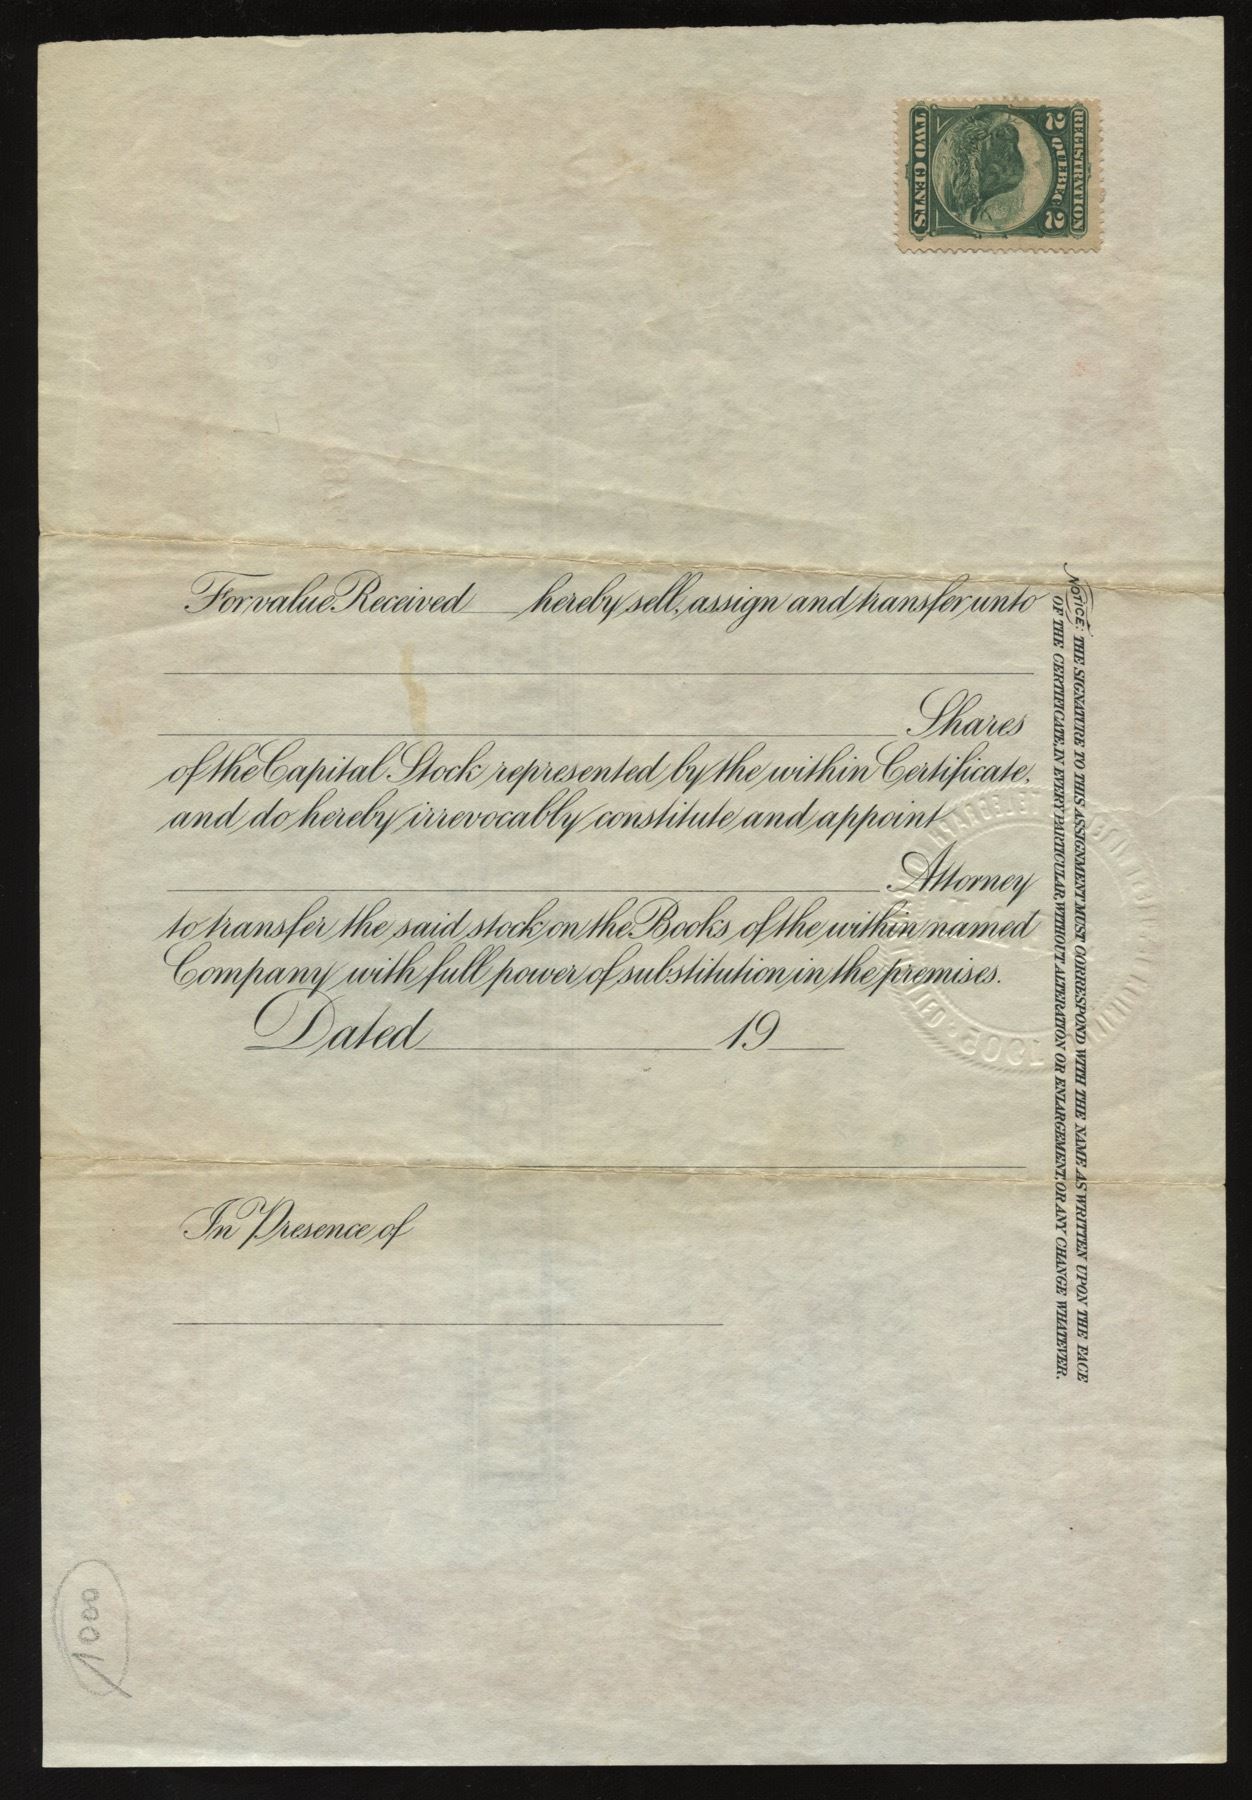 REGISTRATION
2 QUEBEC 2
TWO CENTS
For value Received ___ hereby sell, assign and transfer unto
Shares
of the Capital Stock represented by the within Certificate,
and do hereby irrevocably constitute and appoint
Attorney
to transfer the said stock on the Books of the within named
Company with full power of substitution in the premises.
Dated ___ 19 ___
In Presence of
NOTICE: THE SIGNATURE TO THIS ASSIGNMENT MUST CORRESPOND WITH THE NAME AS WRITTEN UPON THE FACE
OF THE CERTIFICATE, IN EVERY PARTICULAR, WITHOUT ALTERATION OR ENLARGEMENT, OR ANY CHANGE WHATEVER.
1000